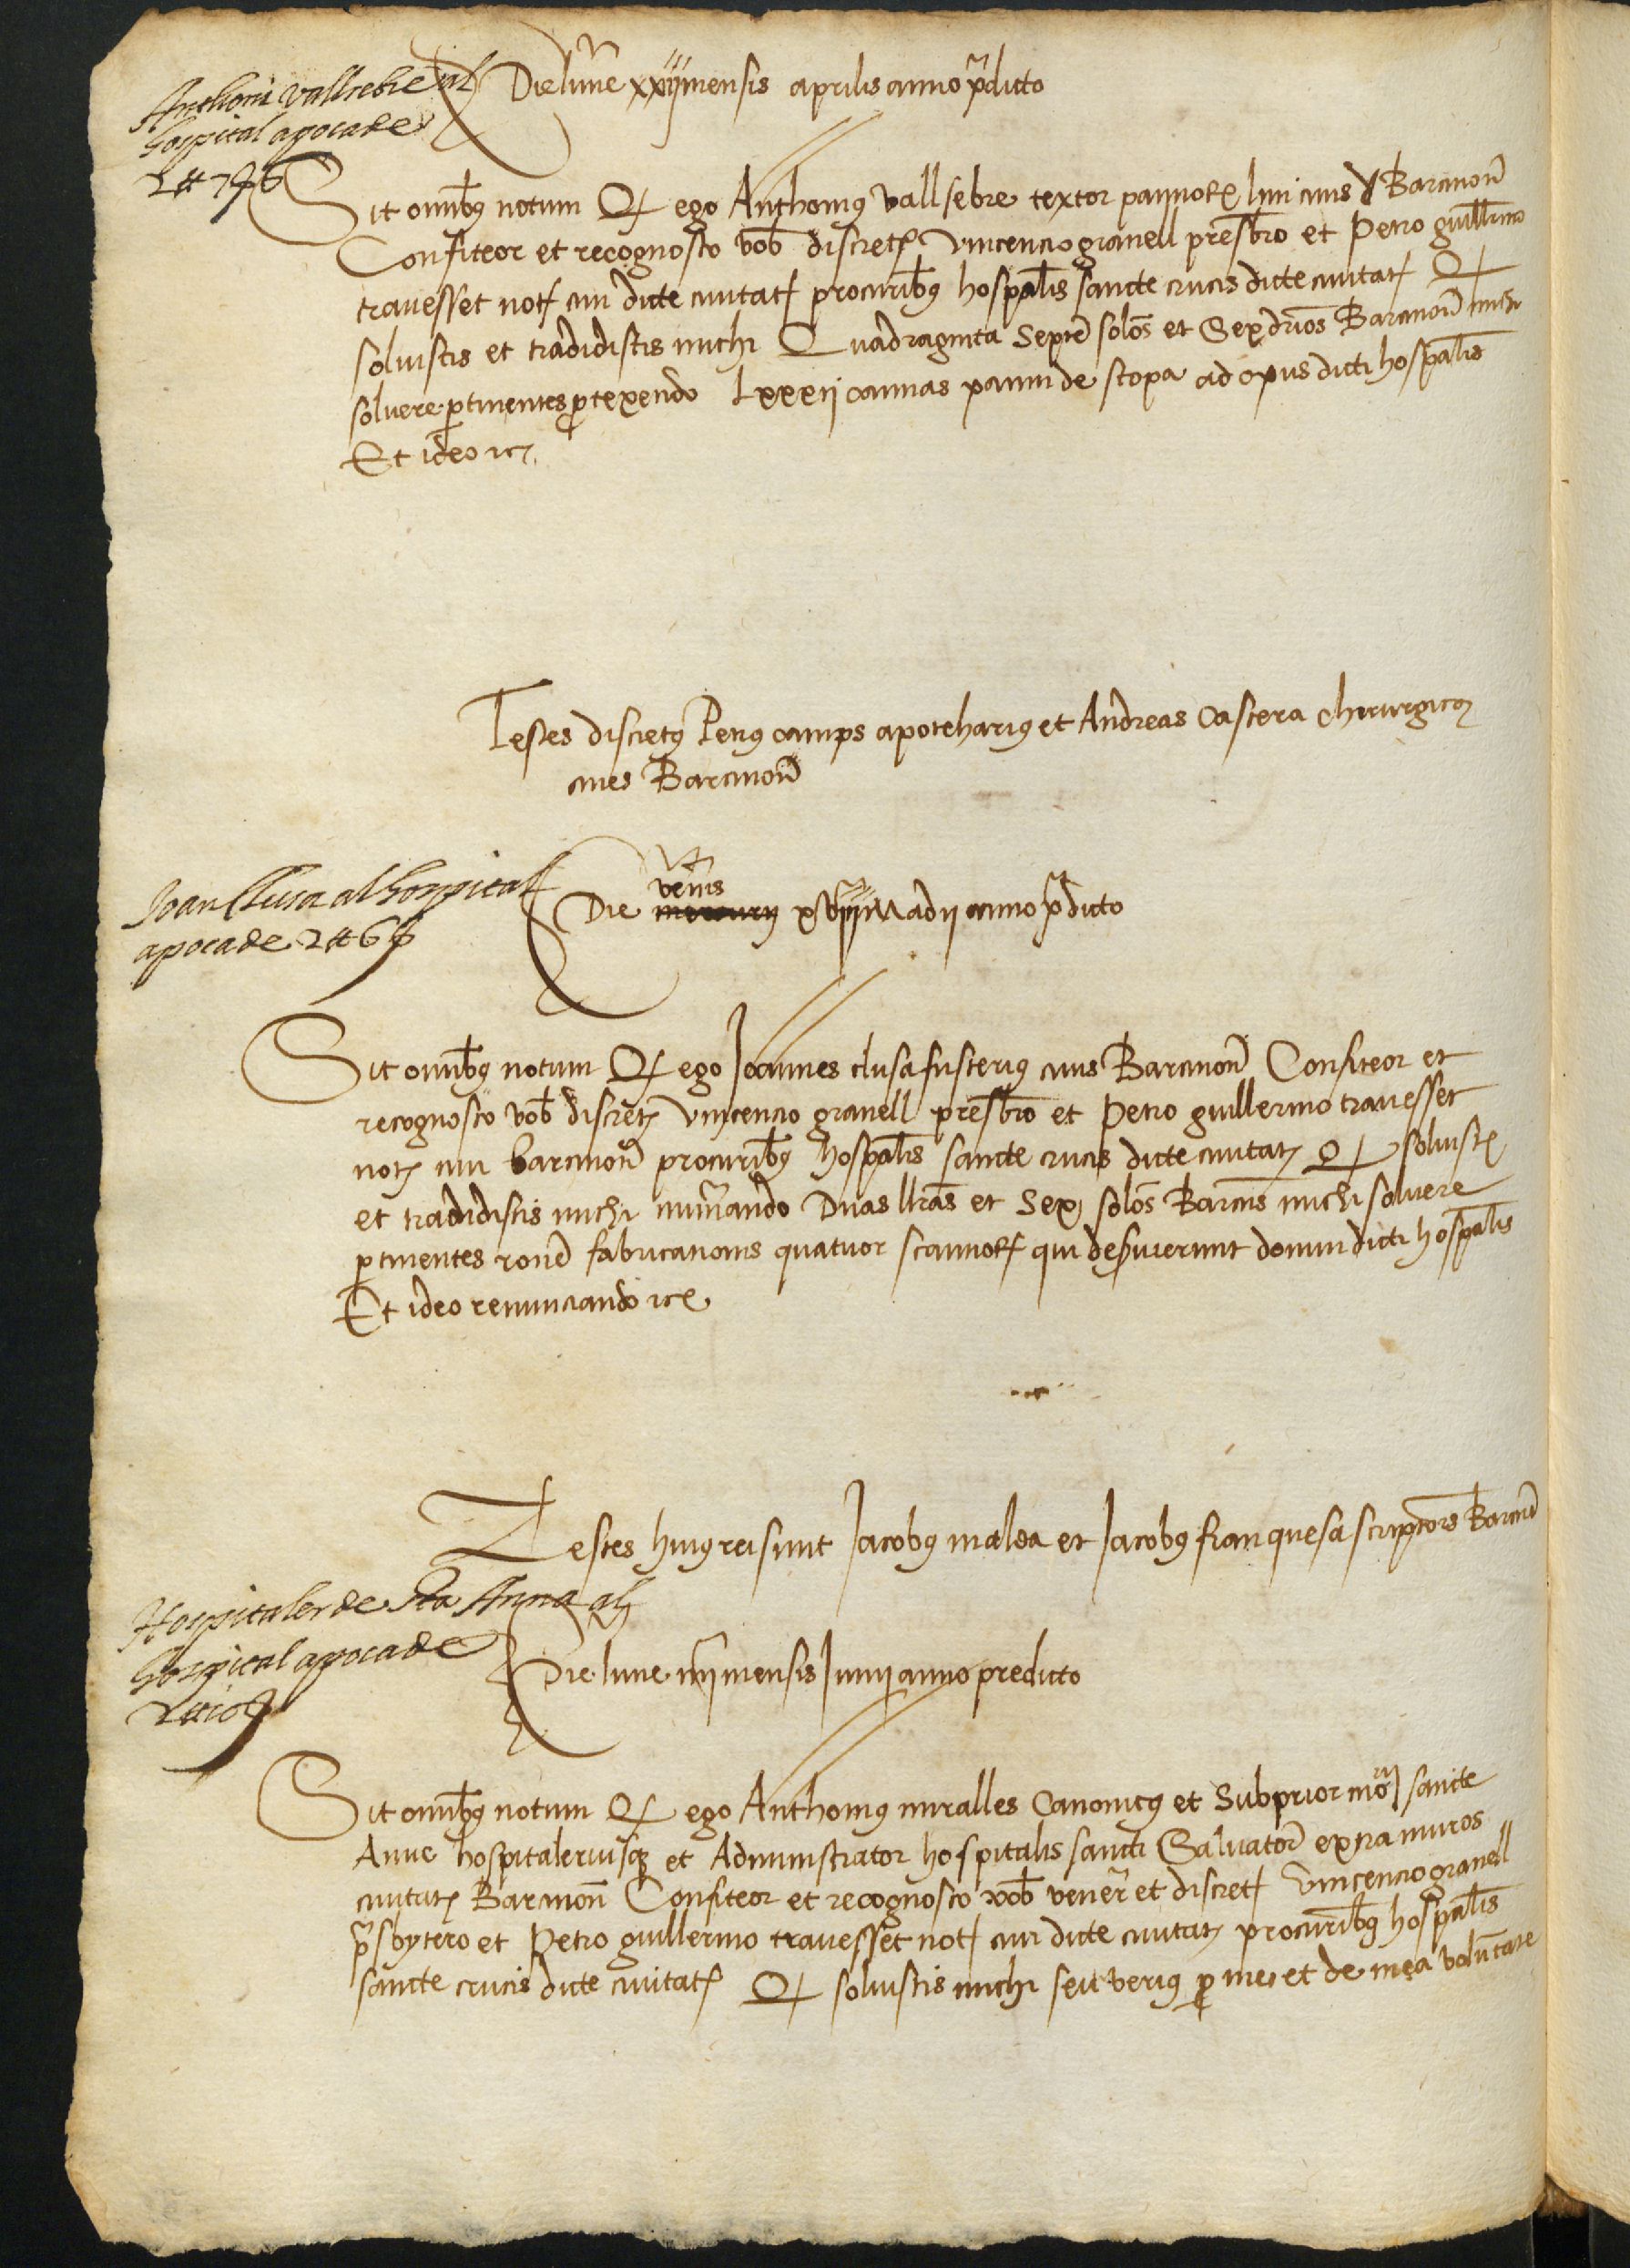 Anthoni vallsebre al
hospital apoca de
2 ℔ 7 ß 6
Die lune xxiij mensis aprilis anno pͬdicto
Sit omnibꝰ notum Qꝭ ego Anthoniꝰ vallsebre textor pannoꝝ lini ciuis Barcinoñ
Confiteor et recognosco vob̄ discretꝭ Vincencio granell presb̄ro et Petro guill̄rmo
trauesset notꝭ ciui dicte ciuitatꝭ procurib̄ꝰ hosp̄alis sancte crucis dicte ciuitatꝭ Qꝭ
soluistis et tradidistis michi Quadraginta Septē soldōs et Sex drīos Barcinoñ michi
soluere ꝑtinentes ꝓ texendo Lxxxij cannas panni de stopa ad opus dicti hosp̄alis
Et ideo ⁊cꝭ
Testes discretꝰ Petrꝰ camps apotecharius et Andreas Castera chirurgicꝰ
ciues Barcinoñ
Joan Clusa al hospital
apoca de 2 ℔ 6 ß
ven̄is
Die mercurij xviij Madij anno pͬdicto
Sit omnibꝰ notum Qꝭ ego Joannes clusa fusteriꝰ ciuis Barcinoñ Confiteor et
recognosco vob̄ discretꝭ Vincencio granell presb̄ro et Petro guillermo trauesset
notꝭ ciui barcinoñ procurib̄ꝰ hosp̄alis sancte crucis dicte ciuitatꝭ Qꝭ soluistꝭ
et tradidistis michi num̄ando Duas lrās et Sex solōs Barcn̄s michi soluere
ꝑtinentes ronē fabricationis quatuor scannoꝝ qui deseruierunt domui dicti hosp̄alis
Et ideo renunciando ⁊cꝭ
Testes huiꝰ rei sunt Jacobꝰ malda et Jacobꝰ franquesa scriptores Barcinoñ
Hospitaler de Sta Anna al
hospital apoca de
2 ℔ 10 ß
Die lune iiij mensis Junij anno predicto
Sit omnibꝰ notum Qꝭ ego Anthoniꝰ miralles Canonicꝰ et Subprior morij sancte
Anne hospitaleriusqꝫ et Administrator hospitalis sancti Saluatorꝭ extra muros
ciuitatꝭ Barcinoñ Confiteor et recognosco vob̄ venerͥ et discretꝭ Vincencio granell
pͬsbytero et Petro guillermo trauesset notꝭ ciui dicte ciuitatꝭ procurib̄ꝰ hosp̄alis
sancte crucis dicte ciuitatꝭ Qꝭ soluistis michi seu veriꝰ ꝓ me et de mea volūtate